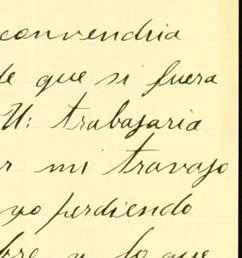 convendria
de que si fuera
U: trabajaria
r mi travajo
yo perdiendo
bre y lo que